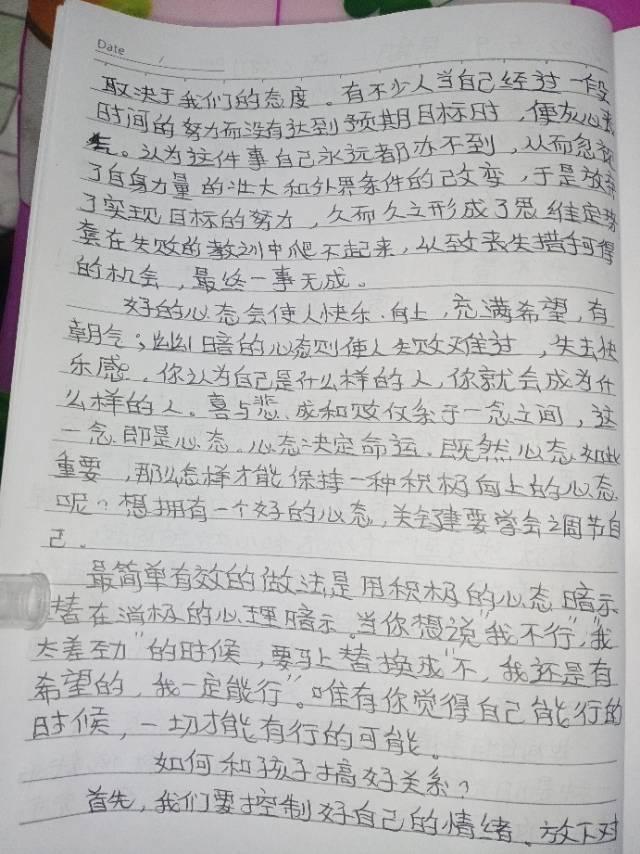 Date /
取决于我们的态度。有不少人当自己经过一段
时间的努力而没有达到预期目标时,便灰心丧
气。认为这件事自己永远都办不到,从而忽视
了自身力量的壮大和外界条件的改变,于是放弃
了实现目标的努力,久而久之形成了思维定势
套在失败的教训中爬不起来,以至丧失措手可得
的机会,最终一事无成。
好的心态会使人快乐、向上,充满希望,有
朝气;幽暗的心态则使人失败难过,失去快
乐感。你认为自己是什么样的人,你就会成为什
么样的人。喜与悲、成和败仅系于一念之间,这
一念即是心态。心态决定命运。既然心态如此
重要,那么怎样才能保持一种积极向上的心态
呢?想拥有一个好的心态,关键要学会调节自
己。
最简单有效的做法是用积极的心态暗示
替在消极的心理暗示。当你想说"我不行","我
太差劲"的时候,要马上替换成"不,我还是有
希望的,我一定能行"。唯有你觉得自己能行的
时候,一切才能有行的可能。
如何和孩子搞好关系?
首先,我们要控制好自己的情绪。放下对